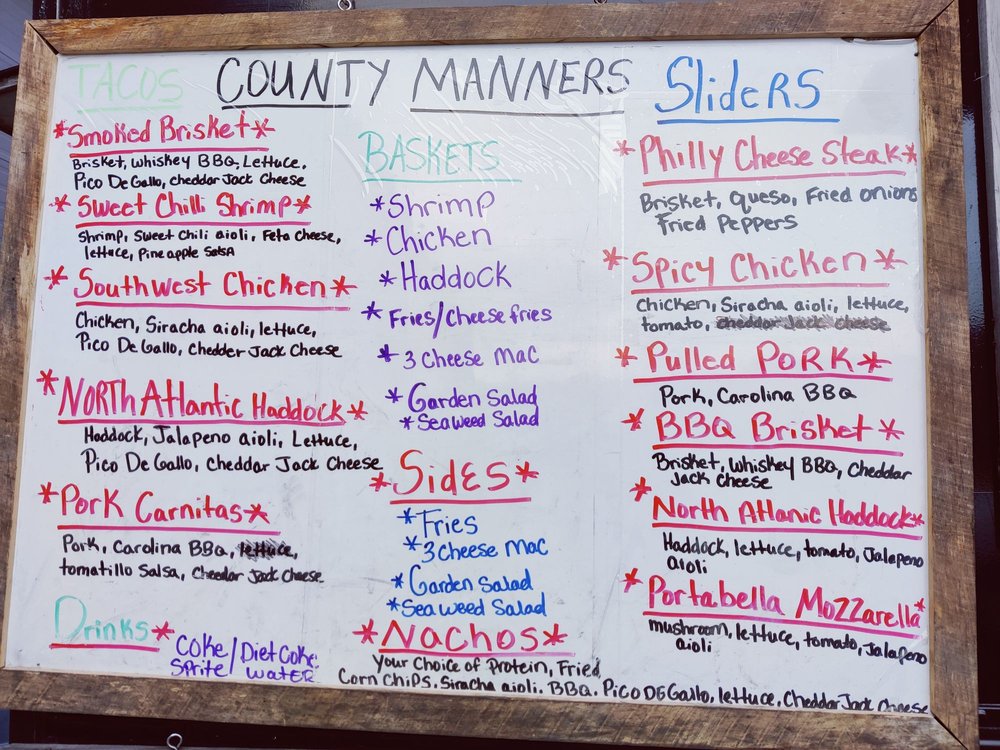 COUNTY MANNERS
TACOS
*Smoked Brisket*
Brisket, Whiskey BBQ, Lettuce,
Pico De Gallo, Cheddar Jack Cheese
* Sweet Chilli Shrimp*
Shrimp, Sweet Chili aioli, Feta Cheese,
lettuce, Pineapple Salsa
* Southwest Chicken*
Chicken, Siracha aioli, lettuce,
Pico De Gallo, Chedder Jack Cheese
*NORTH Atlantic Haddock*
Haddock, Jalapeno aioli, Lettuce,
Pico De Gallo, Cheddar Jack Cheese
*Pork Carnitas*
Pork, Carolina BBQ, lettuce,
tomatillo Salsa, Cheedar Jack Cheese
Drinks*
COKE/Diet Coke
Sprite/ WATER
BASKETS
*Shrimp
*Chicken
*Haddock
*Fries/Cheese fries
*3 Cheese Mac
*Garden Salad
*Seaweed Salad
*SidES*
*Fries
*3 Cheese Mac
*Garden Salad
*Seaweed Salad
*Nachos*
Your Choice of Protein, Fried
Corn Chips, Siracha aioli, BBQ, Pico DE Gallo, lettuce, Cheddar Jack Cheese
SlideRS
*Philly Cheese Steak*
Brisket, Queso, Fried onions
Fried Peppers
*Spicy Chicken*
Chicken, Siracha aioli, lettuce,
tomato, cheddar Jack Cheese
*Pulled PoRK*
Pork, Carolina BBQ
*BBQ Brisket*
Brisket, Whiskey BBQ, Cheddar
Jack Cheese
*North Atlanic Haddock*
Haddock, lettuce, tomato, Jalapeno
aioli
*Portabella Mozzarella*
mushroom, lettuce, tomato, Jalapeno
aioli